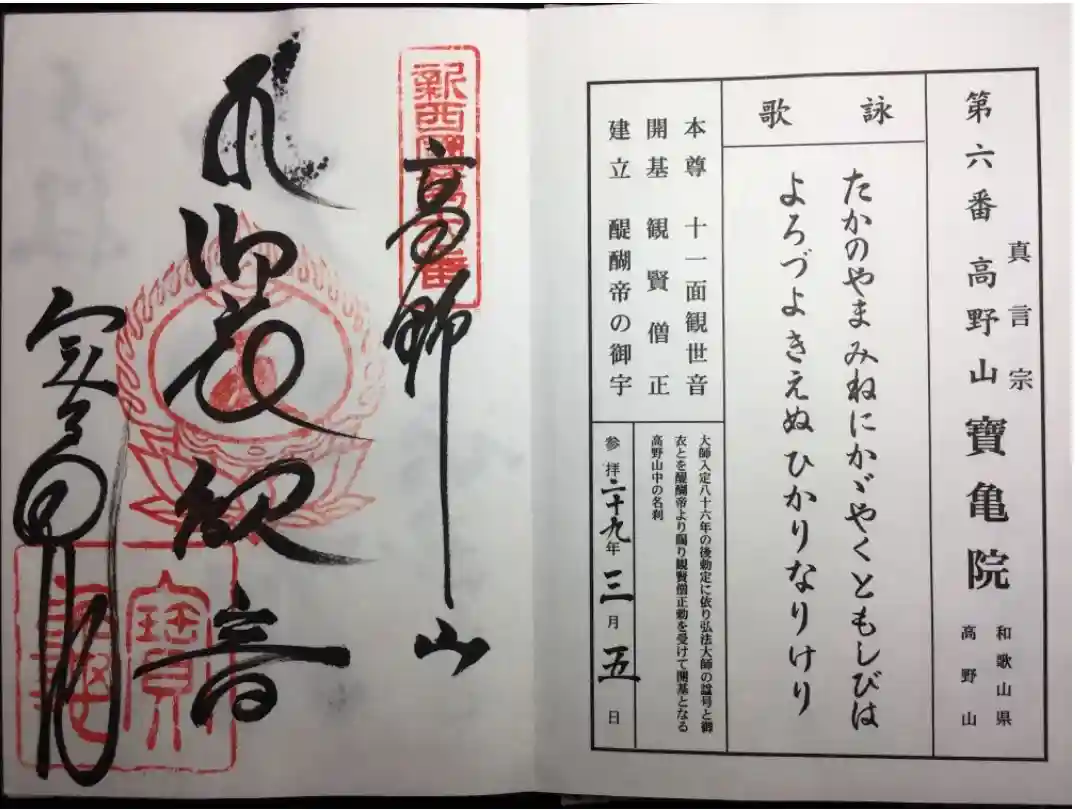 真言宗
第六番 高野山 寶亀院
和歌山県
高野山
詠歌
たかのやまみねにかゞやくともしびは
よろづよきえぬひかりなりけり
本尊 十一面観世音
開基 観賢僧正
建立 醍醐帝の御宇
大師入定八十六年の後勅定に依り弘法大師の諡号と御
衣とを醍醐帝より賜り観賢僧正勅を受けて開基となる
高野山中の名刹
参拝二十九年三月五日
新西國第六番
高野山
御衣観音
寶亀院